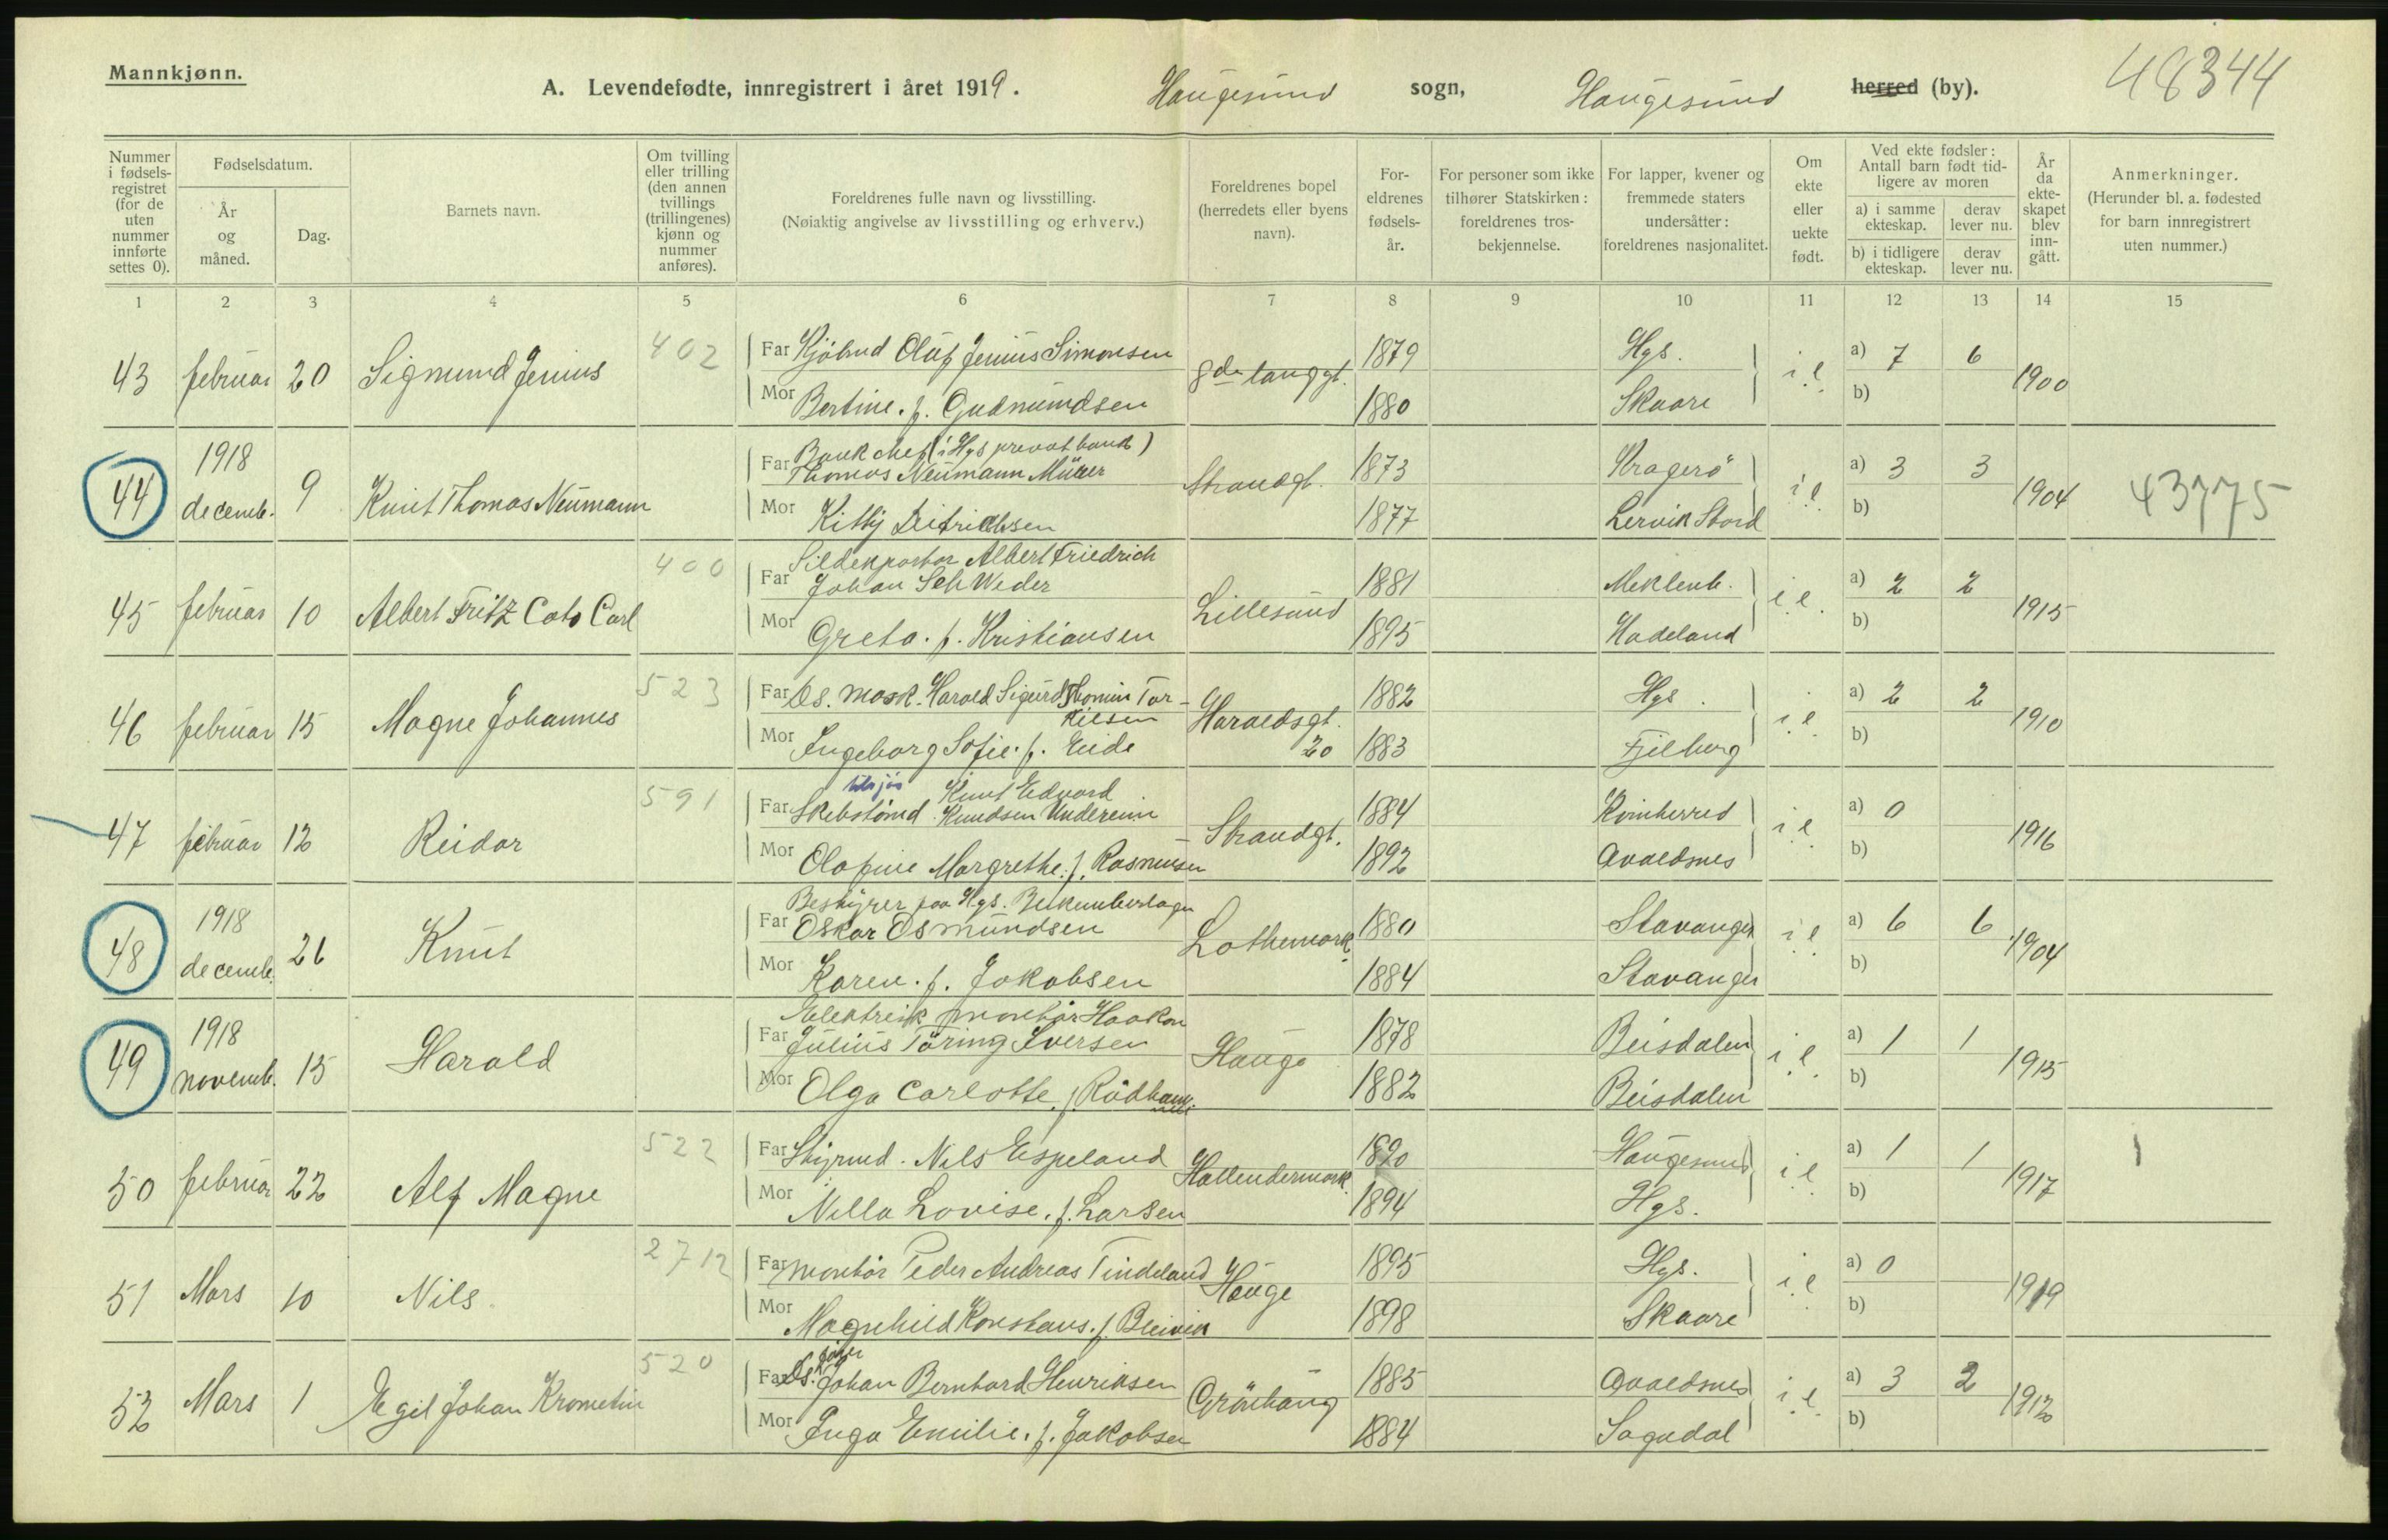 Mannkjønn.
A. Levendefødte, innregistrert i året 1919. Haugesund sogn, Haugesund herred (by). 48344
Nummer i fødselsregistret (for de uten nummer innførte settes 0).
Fødselsdatum.
År og måned.
Dag.
Barnets navn.
Om tvilling eller trilling (den annen tvillings (trillingenes) kjønn og nummer anføres).
Foreldrenes fulle navn og livsstilling.
(Nøiaktig angivelse av livsstilling og erhverv.)
Foreldrenes bopel (herredets eller byens navn).
Foreldrenes fødselsår.
For personer som ikke tilhører Statskirken: foreldrenes trosbekjennelse.
For lapper, kvener og fremmede staters undersåtter: foreldrenes nasjonalitet.
Om ekte eller uekte født.
Ved ekte fødsler: Antall barn født tidligere av moren
a) i samme ekteskap.
derav lever nu.
b) i tidligere ekteskap.
derav lever nu.
År da ekteskapet blev inngått.
Anmerkninger.
(Herunder bl. a. fødested for barn innregistrert uten nummer.)
1 2 3 4 5 6 7 8 9 10 11 12 13 14 15
43 februar 20 Sigmund Jenius 402 Far Kjøbmd Oluf Jenius Simonsen 8de langgt. 1879 Hgs. i.e. a) 7 6 1900
Mor Bertine. f. Gudmundsen 1880 Skaare b)
44 1918 decemb. 9 Knut Thomas Neumann Far Bankchef (i Hgs privatbank)
Thomas Neumann Strandgt. 1873 Kragerö i e a) 3 3 1904 43775
Mor Kitty Ditrichsen 1877 Lervik Stord b)
45 februar 10 Albert Fritz Carl 400 Sildexportør Albert Friedrich
Far Johan Lillesund 1881 Meklenb. i.e. a) 2 2 1915
Mor Greta. f. Kristiansen 1895 Hadeland b)
46 februar 15 Magne Johannes 523 Far Ds. mask. Harald Sigurd Tor-
kilsen Haraldsgt. 20 1882 Hgs. i e a) 2 2 1910
Mor Ingeborg Sofie. f. Eide 1883 Fjelberg b)
47 februar 12 Reidar 591 Knut Edvard
Far Knudsen Strandgt. 1884 Kvinherred i e a) 0 1916
Mor Olafine Margrethe. f. Rasmussen 1892 Avaldsnes b)
48 1918 decemb. 26 Knut Bestyrer paa Hgs.
Far Oskar Osmundsen Lothemark 1880 Stavanger i e a) 6 6 1904
Mor Karen. f. Jakobsen 1884 Stavanger b)
49 1918 novemb. 15 Harald Elektrisk montör Haakon
Far Julius Töring Iversen Hauge 1878 Beisdalen i e a) 1 1 1915
Mor Olga Carlotte. f. 1882 Beisdalen b)
50 februar 22 Alf Magne 522 Far Styrmd. Nils Espeland Hallendermark. 1890 Haugesund i e a) 1 1 1917 1
Mor Nilla Lovise. f. Larsen 1894 Hgs. b)
51 Mars 10 Nils 2712 Far montör Peder Andreas Tindeland Hauge 1895 Hgs. i e a) 0 1919
Mor Magnhild Konstans. f. Bleivik 1898 Skaare b)
52 Mars 1 Egil Johan 520 Far Ds. Johan Bernhard Henriksen Grönhaug 1885 Avaldsnes i.e. a) 3 2 1912
Mor Inga Emilie. f. Jakobsen 1884 Sogndal b)